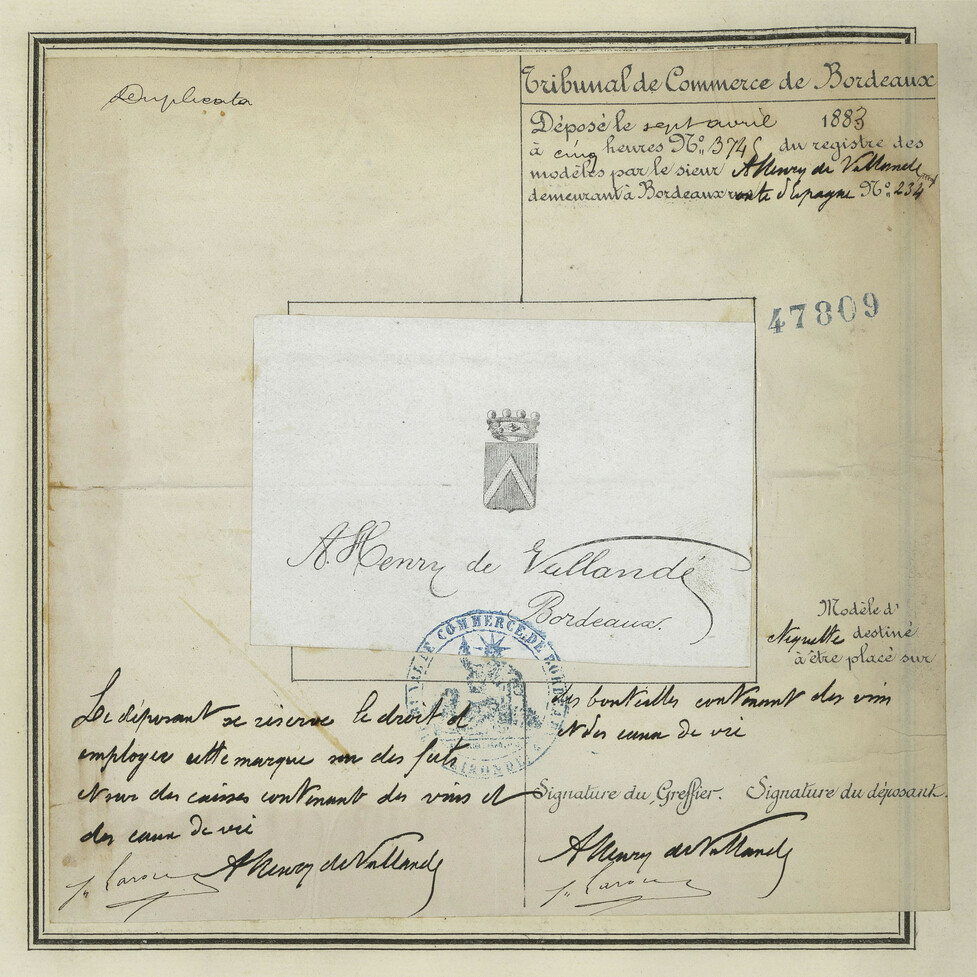 Duplicata
Tribunal de Commerce de Bordeaux
Déposé le sept avril 1883
à cinq heures No. 3745 du registre des
modèles par le sieur A Henry de Vallandé
demeurant à Bordeaux route d'Espagne No. 234
47809
A. Henry de Vallandé
Bordeaux.
Modèle d'
étiquette destiné
à être placé sur
des bouteilles contenant des vins
et des eaux de vie
Le déposant se réserve le droit d
employer cette marque sur des futs
et sur des caisses contenant des vins et
des eaux de vie
Signature du Greffier. Signature du déposant.
A Henry de Vallandé
A Henry de Vallandé
COMMERCE DE BORDEAUX
GIRONDE